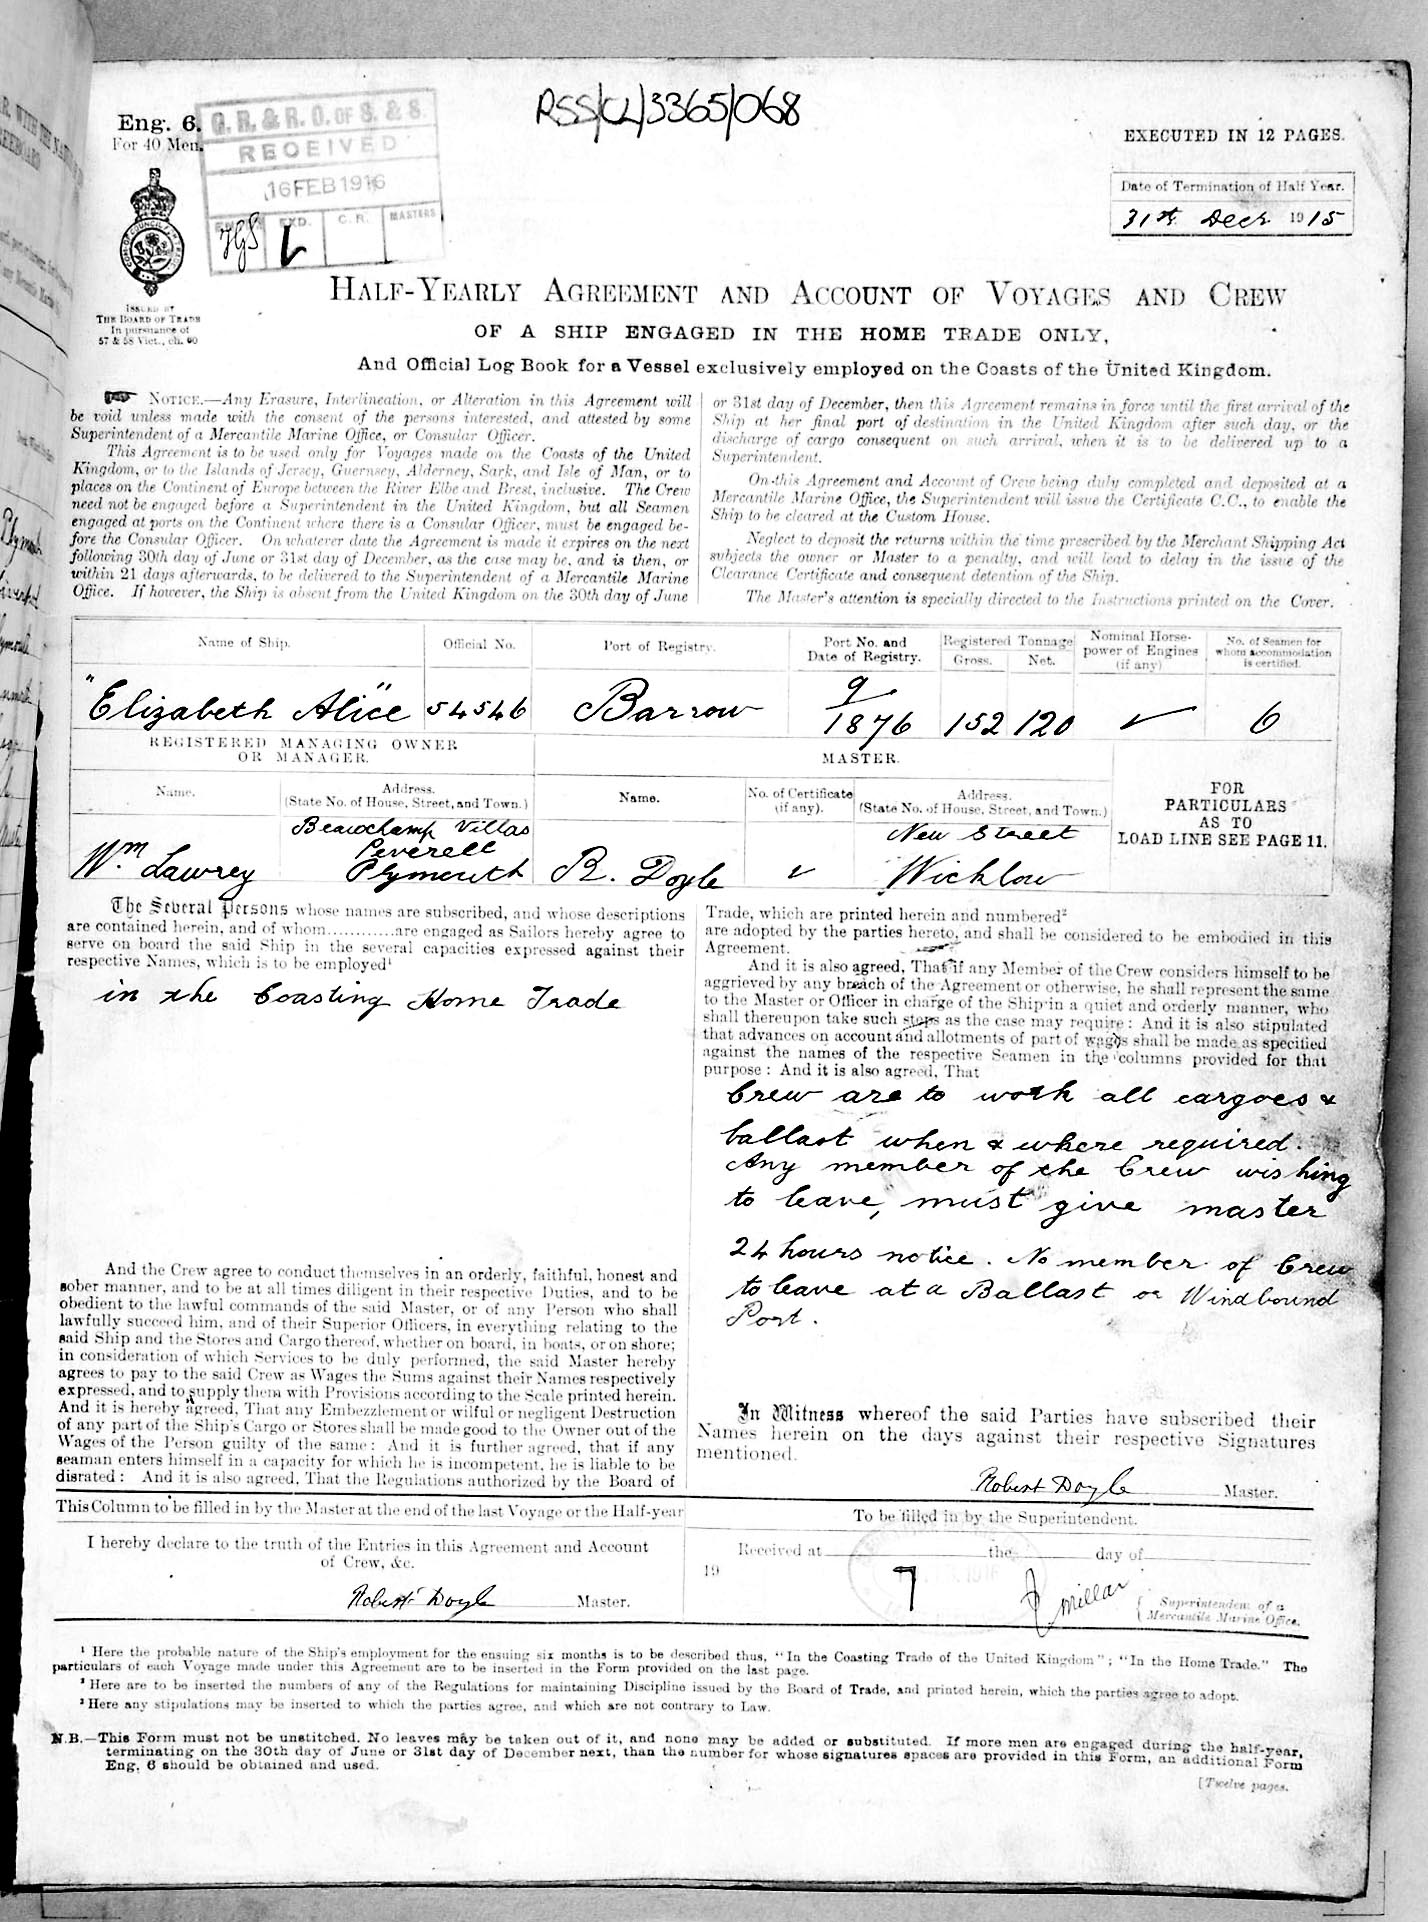 RSS/CL/3365/068
Eng. 6.
For 40 Men.
G. R. & R. O. OF S. & S.
RECEIVED
16 FEB 1916
EXD.
C. R.
MASTERS
EXECUTED IN 12 PAGES.
Date of Termination of Half Year.
31st Decr 1915
ISSUED BY
THE BOARD OF TRADE
In pursuance of
57 & 58 Vict., ch. 60
HALF-YEARLY AGREEMENT AND ACCOUNT OF VOYAGES AND CREW
OF A SHIP ENGAGED IN THE HOME TRADE ONLY,
And Official Log Book for a Vessel exclusively employed on the Coasts of the United Kingdom.
NOTICE.—Any Erasure, Interlineation, or Alteration in this Agreement will
be void unless made with the consent of the persons interested, and attested by some
Superintendent of a Mercantile Marine Office, or Consular Officer.
This Agreement is to be used only for Voyages made on the Coasts of the United
Kingdom, or to the Islands of Jersey, Guernsey, Alderney, Sark, and Isle of Man, or to
places on the Continent of Europe between the River Elbe and Brest, inclusive. The Crew
need not be engaged before a Superintendent in the United Kingdom, but all Seamen
engaged at ports on the Continent where there is a Consular Officer, must be engaged be-
fore the Consular Officer. On whatever date the Agreement is made it expires on the next
following 30th day of June or 31st day of December, as the case may be, and is then, or
within 21 days afterwards, to be delivered to the Superintendent of a Mercantile Marine
Office. If however, the Ship is absent from the United Kingdom on the 30th day of June
or 31st day of December, then this Agreement remains in force until the first arrival of the
Ship at her final port of destination in the United Kingdom after such day, or the
discharge of cargo consequent on such arrival, when it is to be delivered up to a
Superintendent.
On this Agreement and Account of Crew being duly completed and deposited at a
Mercantile Marine Office, the Superintendent will issue the Certificate C.C., to enable the
Ship to be cleared at the Custom House.
Neglect to deposit the returns within the time prescribed by the Merchant Shipping Act
subjects the owner or Master to a penalty, and will lead to delay in the issue of the
Clearance Certificate and consequent detention of the Ship.
The Master's attention is specially directed to the Instructions printed on the Cover.
Name of Ship.
Official No.
Port of Registry.
Port No. and
Date of Registry.
Registered Tonnage
Gross. Net.
Nominal Horse-
power of Engines
(if any)
No. of Seamen for
whom accommodation
is certified.
"Elizabeth Alice" 54546 Barrow 9/1876 152 120 6
REGISTERED MANAGING OWNER
OR MANAGER.
MASTER.
Name.
Address.
(State No. of House, Street, and Town.)
Name.
No. of Certificate
(if any).
Address.
(State No. of House, Street, and Town.)
FOR
PARTICULARS
AS TO
LOAD LINE SEE PAGE 11.
Wm Lawrey
Beauchamp Villas
Peverell
Plymouth
R. Doyle
New Street
Wicklow
The Several Persons whose names are subscribed, and whose descriptions
are contained herein, and of whom............are engaged as Sailors hereby agree to
serve on board the said Ship in the several capacities expressed against their
respective Names, which is to be employed¹
in the Coasting Home Trade
And the Crew agree to conduct themselves in an orderly, faithful, honest and
sober manner, and to be at all times diligent in their respective Duties, and to be
obedient to the lawful commands of the said Master, or of any Person who shall
lawfully succeed him, and of their Superior Officers, in everything relating to the
said Ship and the Stores and Cargo thereof, whether on board, in boats, or on shore;
in consideration of which Services to be duly performed, the said Master hereby
agrees to pay to the said Crew as Wages the Sums against their Names respectively
expressed, and to supply them with Provisions according to the Scale printed herein.
And it is hereby agreed, That any Embezzlement or wilful or negligent Destruction
of any part of the Ship's Cargo or Stores shall be made good to the Owner out of the
Wages of the Person guilty of the same: And it is further agreed, that if any
seaman enters himself in a capacity for which he is incompetent, he is liable to be
disrated: And it is also agreed, That the Regulations authorized by the Board of
Trade, which are printed herein and numbered²
are adopted by the parties hereto, and shall be considered to be embodied in this
Agreement.
And it is also agreed, That if any Member of the Crew considers himself to be
aggrieved by any breach of the Agreement or otherwise, he shall represent the same
to the Master or Officer in charge of the Ship in a quiet and orderly manner, who
shall thereupon take such steps as the case may require: And it is also stipulated
that advances on account and allotments of part of wages shall be made as specified
against the names of the respective Seamen in the columns provided for that
purpose: And it is also agreed, That
Crew are to work all cargoes &
ballast when & where required.
Any member of the Crew wishing
to leave, must give master
24 hours notice. No member of Crew
to leave at a Ballast or Windbound
Port.
In Witness whereof the said Parties have subscribed their
Names herein on the days against their respective Signatures
mentioned.
Robert Doyle Master.
This Column to be filled in by the Master at the end of the last Voyage or the Half-year
I hereby declare to the truth of the Entries in this Agreement and Account
of Crew, &c.
Robert Doyle Master.
To be filled in by the Superintendent.
Received at the day of
19
7
Millar
Superintendent of a
Mercantile Marine Office.
¹ Here the probable nature of the Ship's employment for the ensuing six months is to be described thus, "In the Coasting Trade of the United Kingdom"; "In the Home Trade." The
particulars of each Voyage made under this Agreement are to be inserted in the Form provided on the last page.
² Here are to be inserted the numbers of any of the Regulations for maintaining Discipline issued by the Board of Trade, and printed herein, which the parties agree to adopt.
³ Here any stipulations may be inserted to which the parties agree, and which are not contrary to Law.
N.B.—This Form must not be unstitched. No leaves may be taken out of it, and none may be added or substituted. If more men are engaged during the half-year,
terminating on the 30th day of June or 31st day of December next, than the number for whose signatures spaces are provided in this Form, an additional Form
Eng. 6 should be obtained and used.
[Twelve pages.